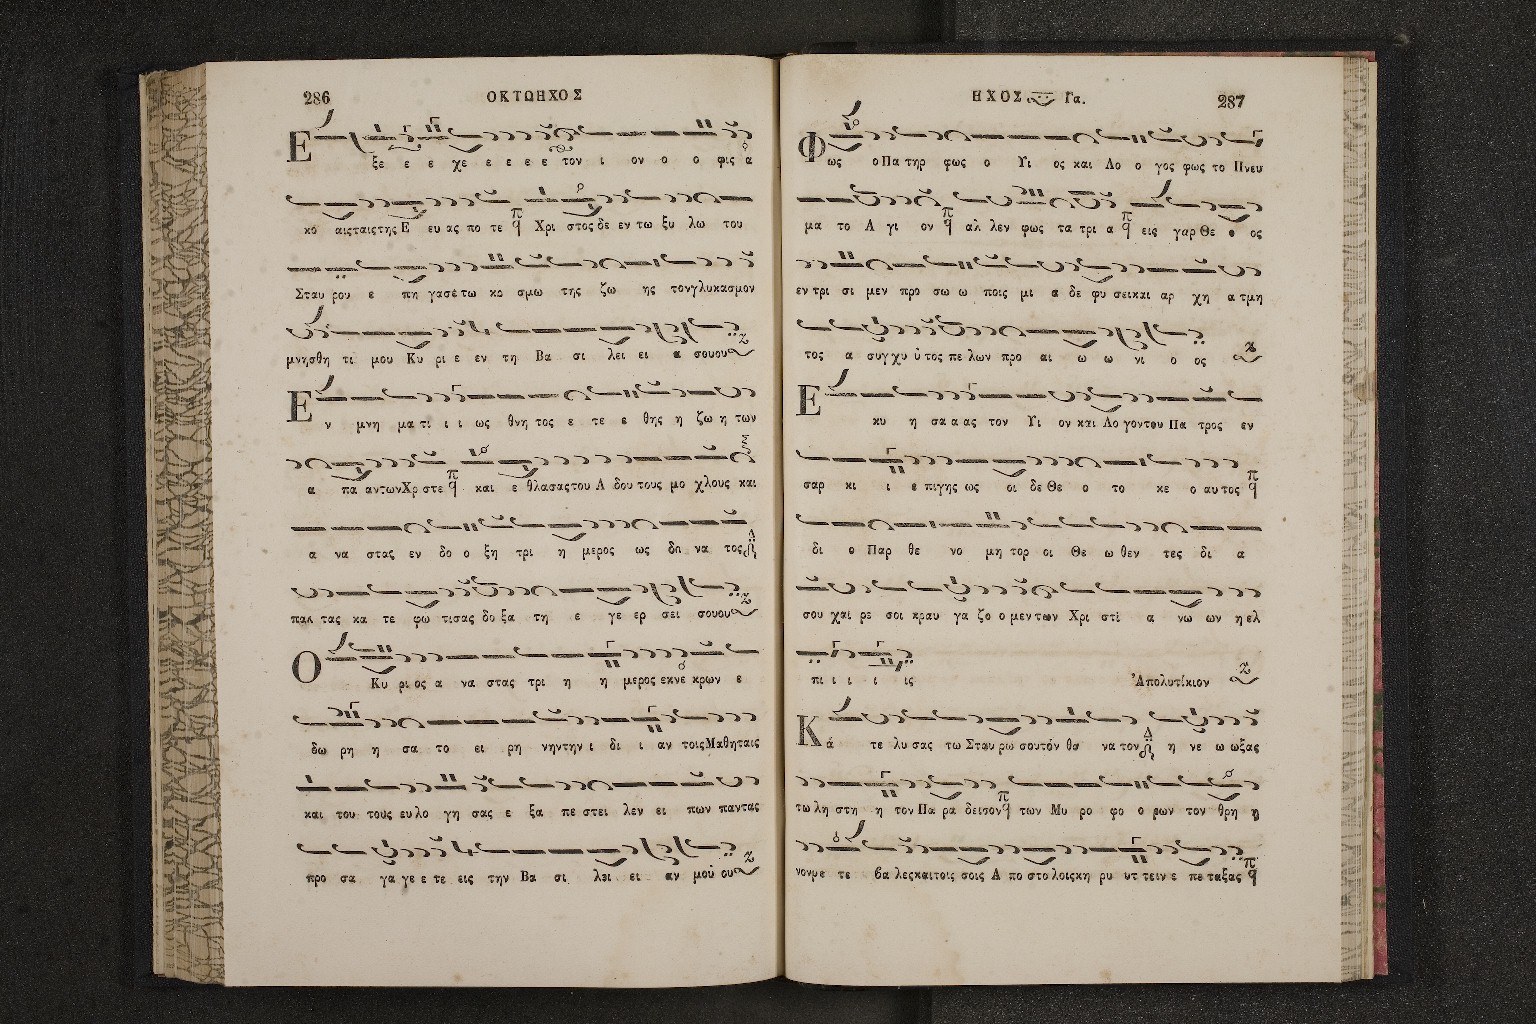 286
ΟΚΤΩΗΧΟΣ
Ε ξε ε ε χε ε ε ε ε τον ι ον ο ο φις α
κο αις ταις της Ε ευ ας πο τε Χρι στος δε εν τω ξυ λω του
Σταυ ρου ε πη γασέ τω κο σμω της ζω ης τον γλυκασμον
μνησθη τι μου Κυ ρι ε εν τη Βα σι λει ει α σουου
Ε ν μνη μα τι ι ι ως θνη τος ε τε ε θης η ζω η των
α πα αντων Χρ στε και ε θλασας του Α δου τους μο χλους και
α να στας εν δο ο ξη τρι η μερος ως δυ να τος
παν τας κα τε φω τισας δο ξα τη ε γε ερ σει σουου
Ο Κυ ρι ος α να στας τρι η η μερος εκ νε κρων ε
δω ρη η σα το ει ρη νην την ι δι ι αν τοις Μαθηταις
και του τους ευ λο γη σας ε ξα πε στει λεν ει πων παντας
προ σα γα γε ε τε εις την Βα σι λει ει αν μού ου
ΗΧΟΣ Γα.
287
Φως ο Πα τηρ φως ο Υι ος και Λο ο γος φως το Πνευ
μα το Α γι ον αλ λεν φως τα τρι α εις γαρ Θε ο ος
εν τρι σι μεν προ σω ω ποις μι α δε φυ σει και αρ χη α τμη
τος α συγ χυ ὺ τος πε λων προ αι ω ω νι ο ος
Ε κυ η σα α ας τον Υι ον και Λο γον του Πα τρος εν
σαρ κι ι ε πι γης ως οι δε Θε ο το κε ο αυ τος
δι ο Παρ θε νο μη τορ οι Θε ω θεν τες δι α
σου χαί ρε σοι κραυ γα ζο ο μεν των Χρι στι α νω ων η ελ
πι ι ι ι ις
Ἀπολυτίκιον
Κά τε λυ σας τω Σταυ ρω σου τόν θα να τον η νε ω ωξας
τω λη στη η τον Πα ρα δεισον των Μυ ρο φο ο ρων τον θρη η
νον με τε βα λες και τοις σοις Α πο στο λοις κη ρυ υτ τειν ε πε ταξας